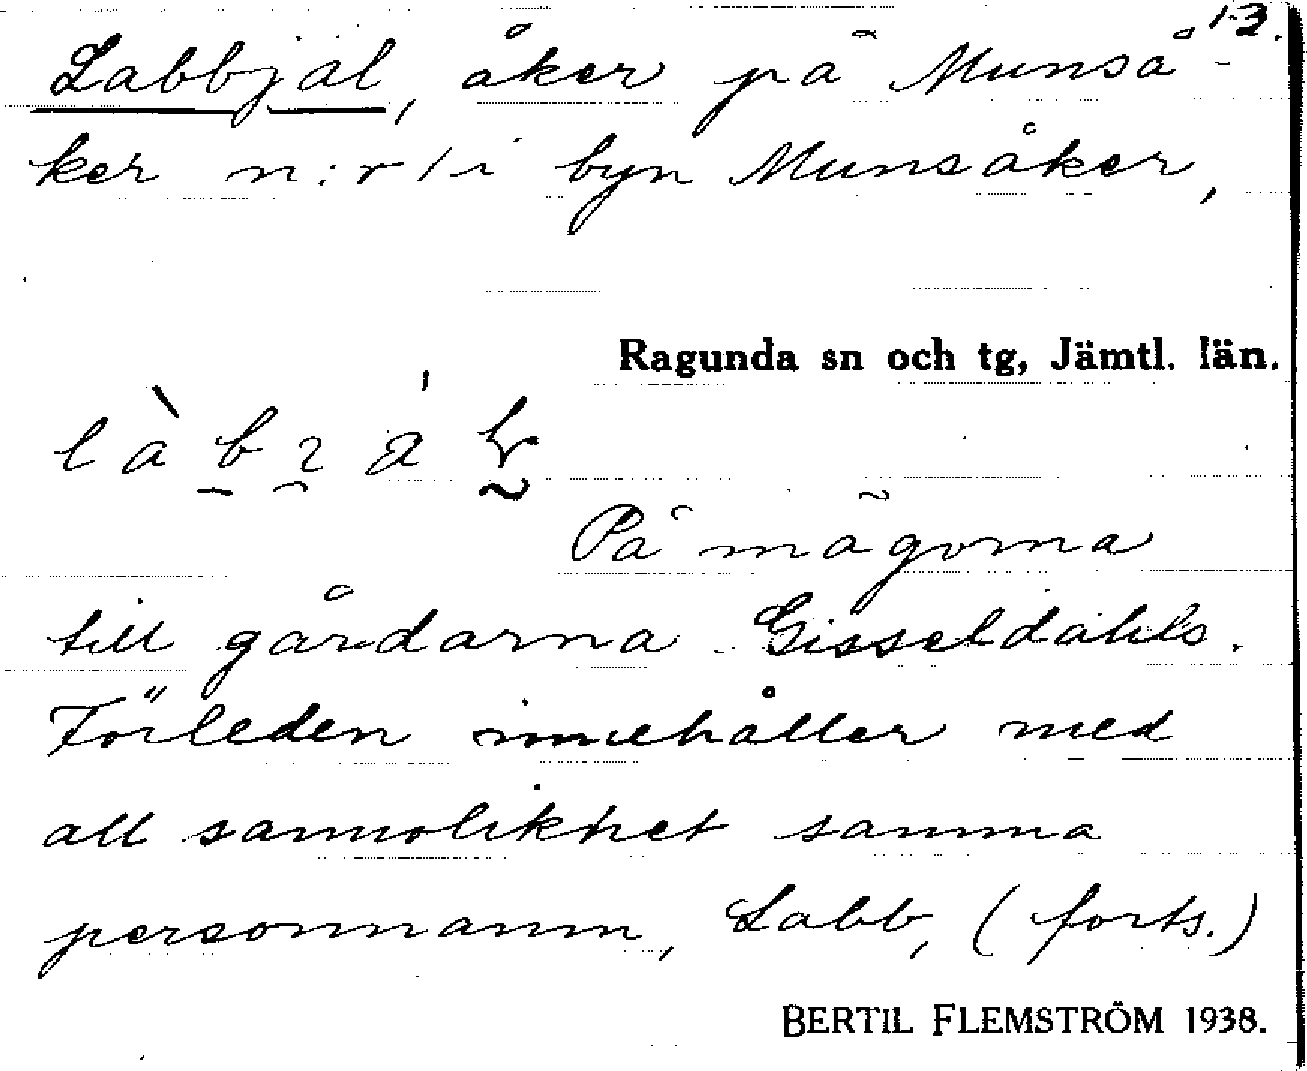 1-3.
Labbjäl, åker på Munså-
ker n:r 1 i byn Munsåker,
Ragunda sn och tg, Jämtl. län.
På mågorna
till gårdarna Gisseldahls.
Förleden innehåller med
all sannolikhet samma
personnamn, Labb, (forts.)
BERTIL FLEMSTRÖM 1938.